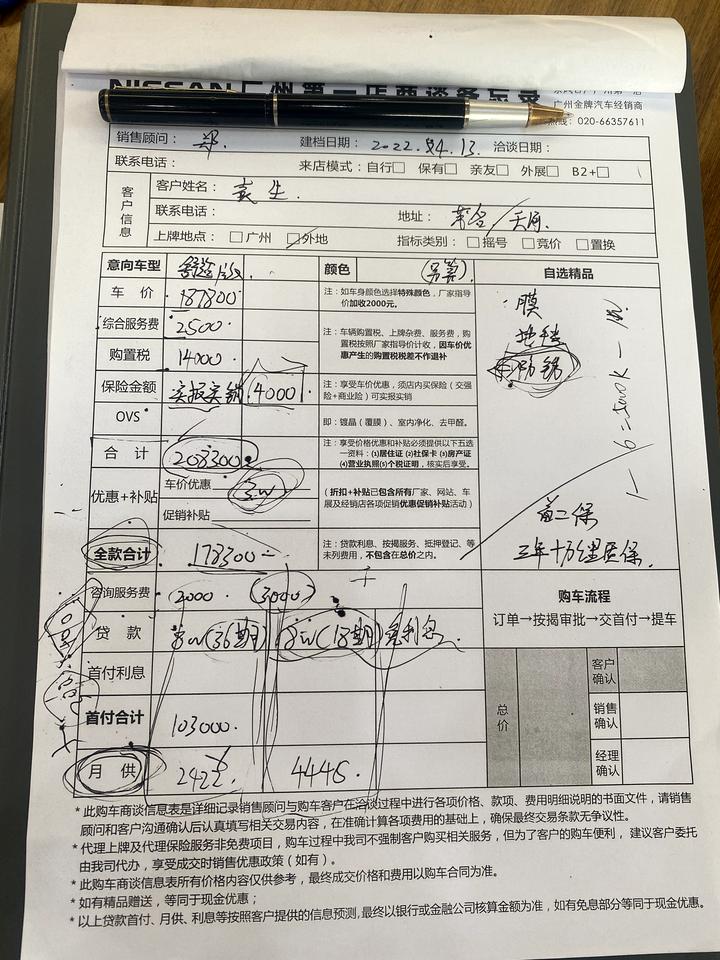 NISSAN广州第一店商谈备忘录
广州金牌汽车经销商
热线：020-66357611
销售顾问：郑. 建档日期：2022. 4.13. 洽谈日期：
联系电话： 来店模式：自行□ 保有□ 亲友□ 外展□ B2+□
客户信息
客户姓名： 生.
联系电话： 地址：
上牌地点：□广州 □外地 指标类别：□摇号 □竞价 □置换
意向车型 舒适版 颜色 自选精品
车 价 187800 注：如车身颜色选择特殊颜色，厂家指导价加收2000元。
膜
综合服务费 2500
购置税 14000
注：车辆购置税、上牌杂费、服务费，购置税按照厂家指导价计收，因车价优惠产生的购置税税差不作退补
保险金额 实报实销 4000 注：享受车价优惠，须店内买保险（交强险+商业险）可实报实销
OVS 即：镀晶（覆膜）、室内净化、去甲醛。
合 计 208300 注：享受价格优惠和补贴必须提供以下五选一资料：(1)居住证 (2)社保卡 (3)房产证 (4)营业执照(5)个税证明，核实后享受。
优惠+补贴 车价优惠 3w
促销补贴
（折扣+补贴已包含所有厂家、网站、车展及经销店各项促销优惠促销补贴活动）
首二保
三年十万公里质保.
全款合计 178300 注：贷款利息、按揭服务、抵押登记、等未列费用，不包含在总价之内。
咨询服务费 3000 (3000) 购车流程
订单→按揭审批→交首付→提车
贷 款 8w(36期) 8w(18期)免利息.
首付利息
首付合计 103000.
月 供 2422. 4445.
总价
客户确认
销售确认
经理确认
* 此购车商谈信息表是详细记录销售顾问与购车客户在洽谈过程中进行各项价格、款项、费用明细说明的书面文件，请销售
顾问和客户沟通确认后认真填写相关交易内容，在准确计算各项费用的基础上，确保最终交易条款无争议性。
* 代理上牌及代理保险服务非免费项目，购车过程中我司不强制客户购买相关服务，但为了客户的购车便利， 建议客户委托
由我司代办，享受成交时销售优惠政策（如有）。
* 此购车商谈信息表所有价格内容仅供参考，最终成交价格和费用以购车合同为准。
* 如有精品赠送，等同于现金优惠；
* 以上贷款首付、月供、利息等按照客户提供的信息预测,最终以银行或金融公司核算金额为准，如有免息部分等同于现金优惠。